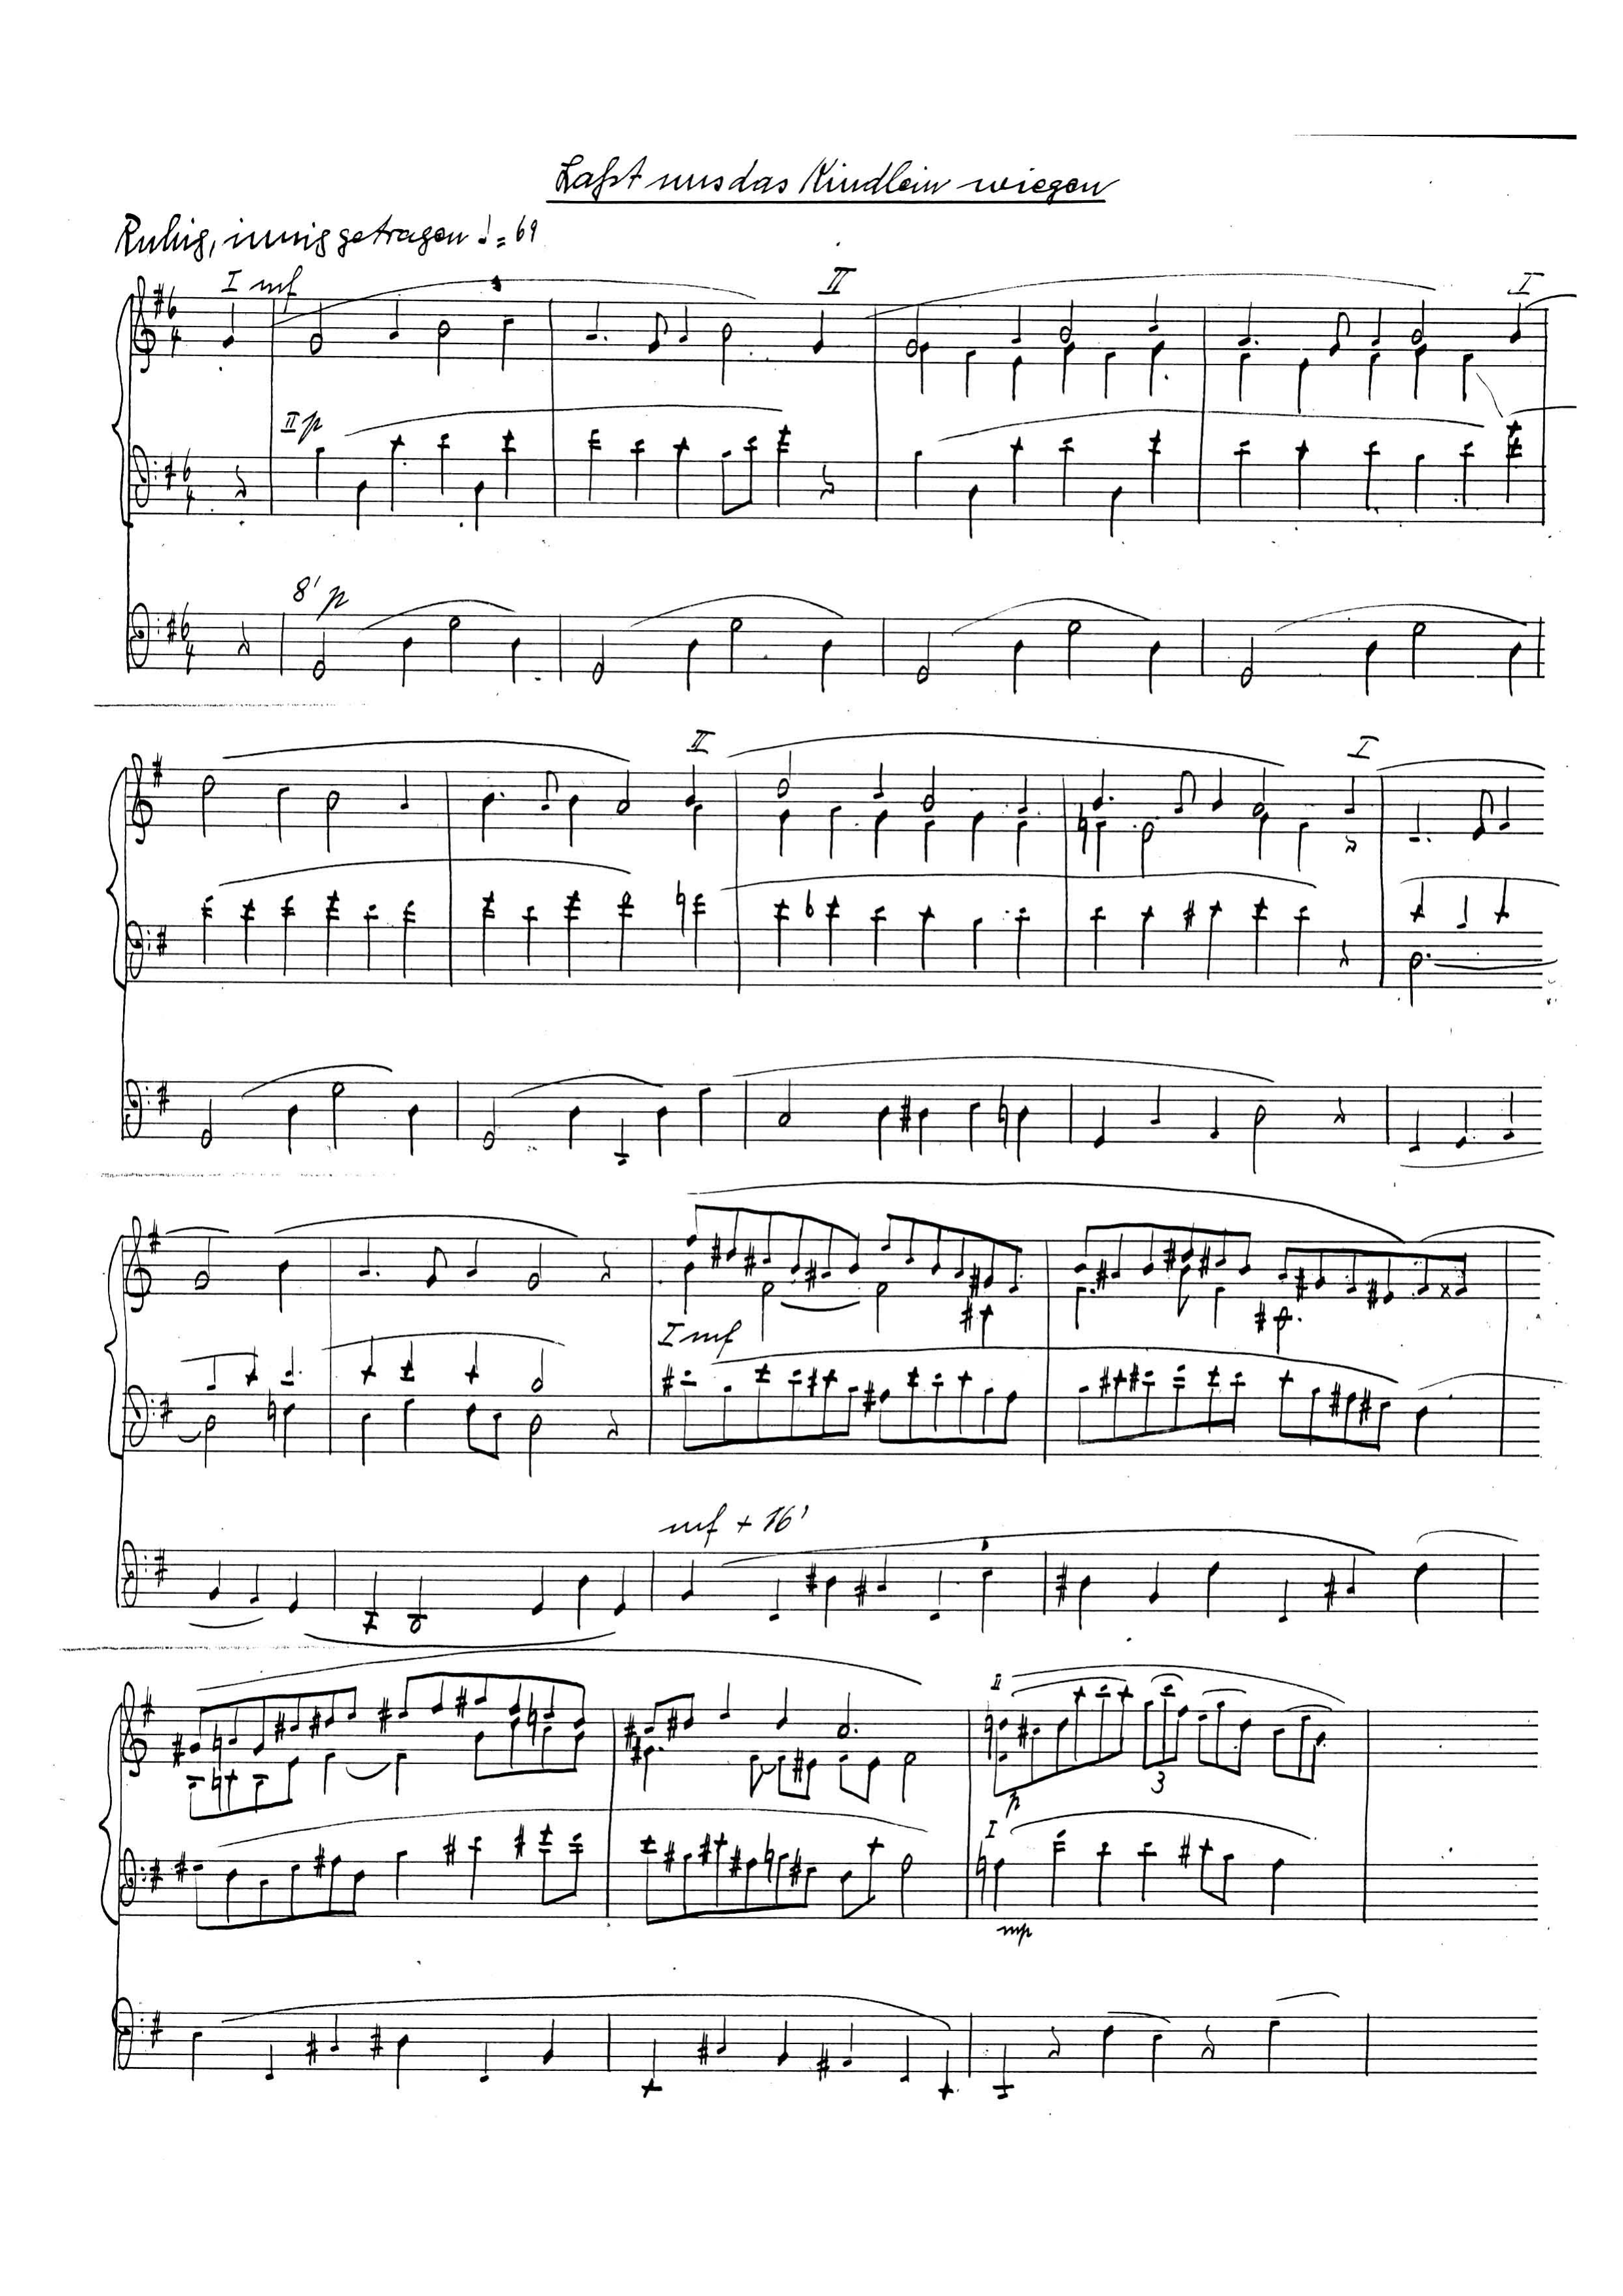 Laßt uns das Kindlein wiegen
Ruhig, innig getragen ♩=69
I mf
II
I
6
4
II p
6
4
8' p
6
4
II
I
I mf
mf + 16'
II
p
3
I
mp